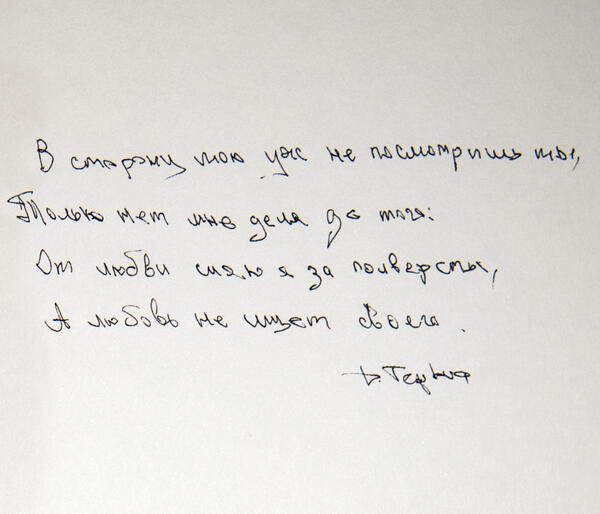 В сторону мою уж не посмотришь ты,
Только нет мне дела до того:
От любви сияю я за полверсты,
А любовь не ищет своего.